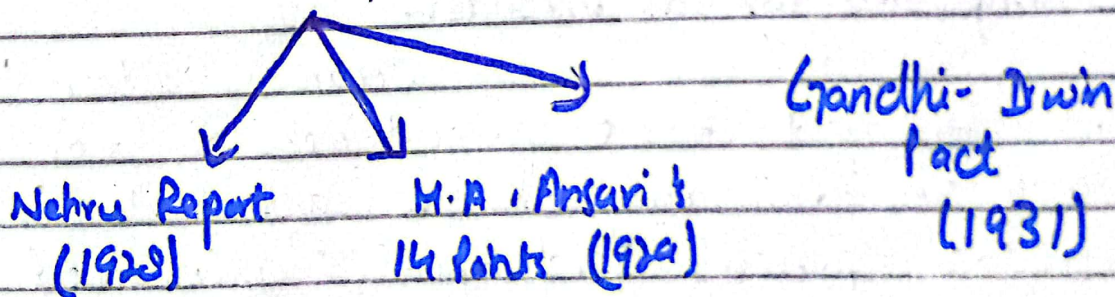 Nehru Report
(1928)
M.A. Ansari's
14 Points (1929)
Gandhi- Irwin
Pact
(1931)